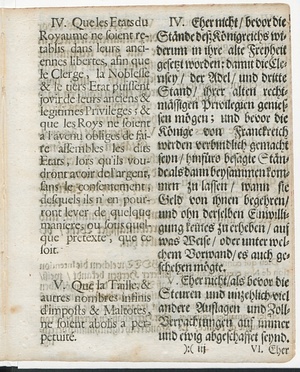 IV. Que les Etats du
Royaume ne soient re-
tablis dans leurs anci-
ennes libertes, afin que
le Clergé, la Noblesse
& le tiers Etat puissent
jovir de leurs anciens &
legitimes Privileges: &
que les Roys ne soient
à l'avenu obligés de fai-
re assembles les dits
Etats, lors qu'ils vou-
dront avoir de l'argent,
sans le consentement,
desquels ils n'en pour-
ront lever de quelque
maniere, ou sous quel-
que pretexte, que ce
soit.
V. Que la Taille, &
autres nombres infinis
d'imposts & Maltotes,
ne soient abolis a per-
petuité.
IV. Eher nicht / bevor die
Stände deß Königreichs wi-
derumb in ihre alte Freyheit
gesetzt worden: damit die Cle-
risey / der Adel / und dritte
Stand / ihrer alten recht-
mässigen Privilegien genies-
sen mögen; und bevor die
Könige von Franckreich
werden verbindlich gemacht
seyn / hinfüro besagte Stän-
de alsdann beysammen kom-
men zu lassen / wann sie
Geld von ihnen begehren /
und ohn derselben Einwilli-
gung keines zu erheben / auf
was Weise / oder unter wel-
chem Vorwand / es auch ge-
schehen mögte.
V. Eher nicht / als bevor die
Steuren und unzehlich viel
andere Auflagen und Zoll-
Verpachtungen auf immer
und ewig abgeschaffet seynd.
):( iij
VI. Eher